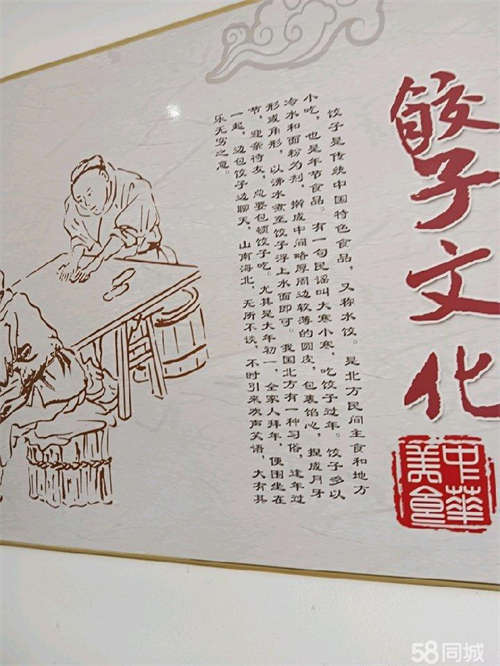 餃子文化
中華美食
饺子是传统中国特色食品，又称水饺。是北方民间主食和地方
小吃，也是年节食品。有一句民谣叫大寒小寒，吃饺子过年。饺子多以
冷水和面粉为剂，擀成中间略厚周边较薄的圆皮，包裹馅心，捏成月牙
形或角形，以沸水煮至饺子浮上水面即可。我国北方有一种习俗，逢年过
节，迎亲待友，总要包顿饺子吃，尤其是大年初一，全家人拜年，便围坐在
一起，边包饺子边聊天，山南海北，无所不谈，不时引来欢声笑语，大有其
乐无穷之意。
58同城